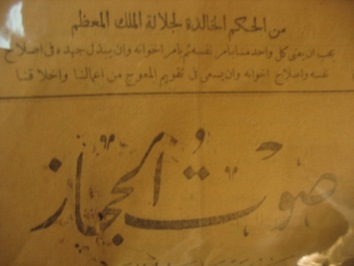 من الحكم الخالدة لجلالة الملك المعظم
يجب ان يعنى كل واحد منا بامر نفسه ثم بامر اخوانه وان يبذل جهده فى اصلاح
نفسه واصلاح اخوانه وان يسعى بكل تقويم المعوج من اعمالنا واخلاقنا
صوت الحجاز